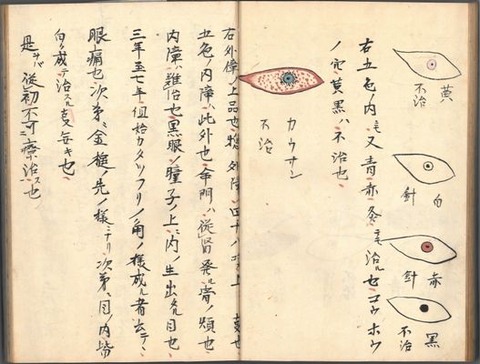 黄
不治
白
針
赤
針
黒
不治
右五色ノ内ニモ又青赤 ニモ治ル也コウホウ
ノ 黄黒ハ不治也
カウサン
不治
右外障ノ上品也 外障 四十八
五色ノ内障ハ此外也命門ハ従腎発ル 煩也
内障ハ難治也黒眼ノ瞳子ノ上ニ内ノ生出タル目也
三年至七年但始カタツフリノ角ノ様成ル者
眼痛也次第ニ金槌ノ先ノ様ニナリ次第ハ目ノ内皆
白ク成テ治スル事無キ也
是ヲハ従初不可療治スル也